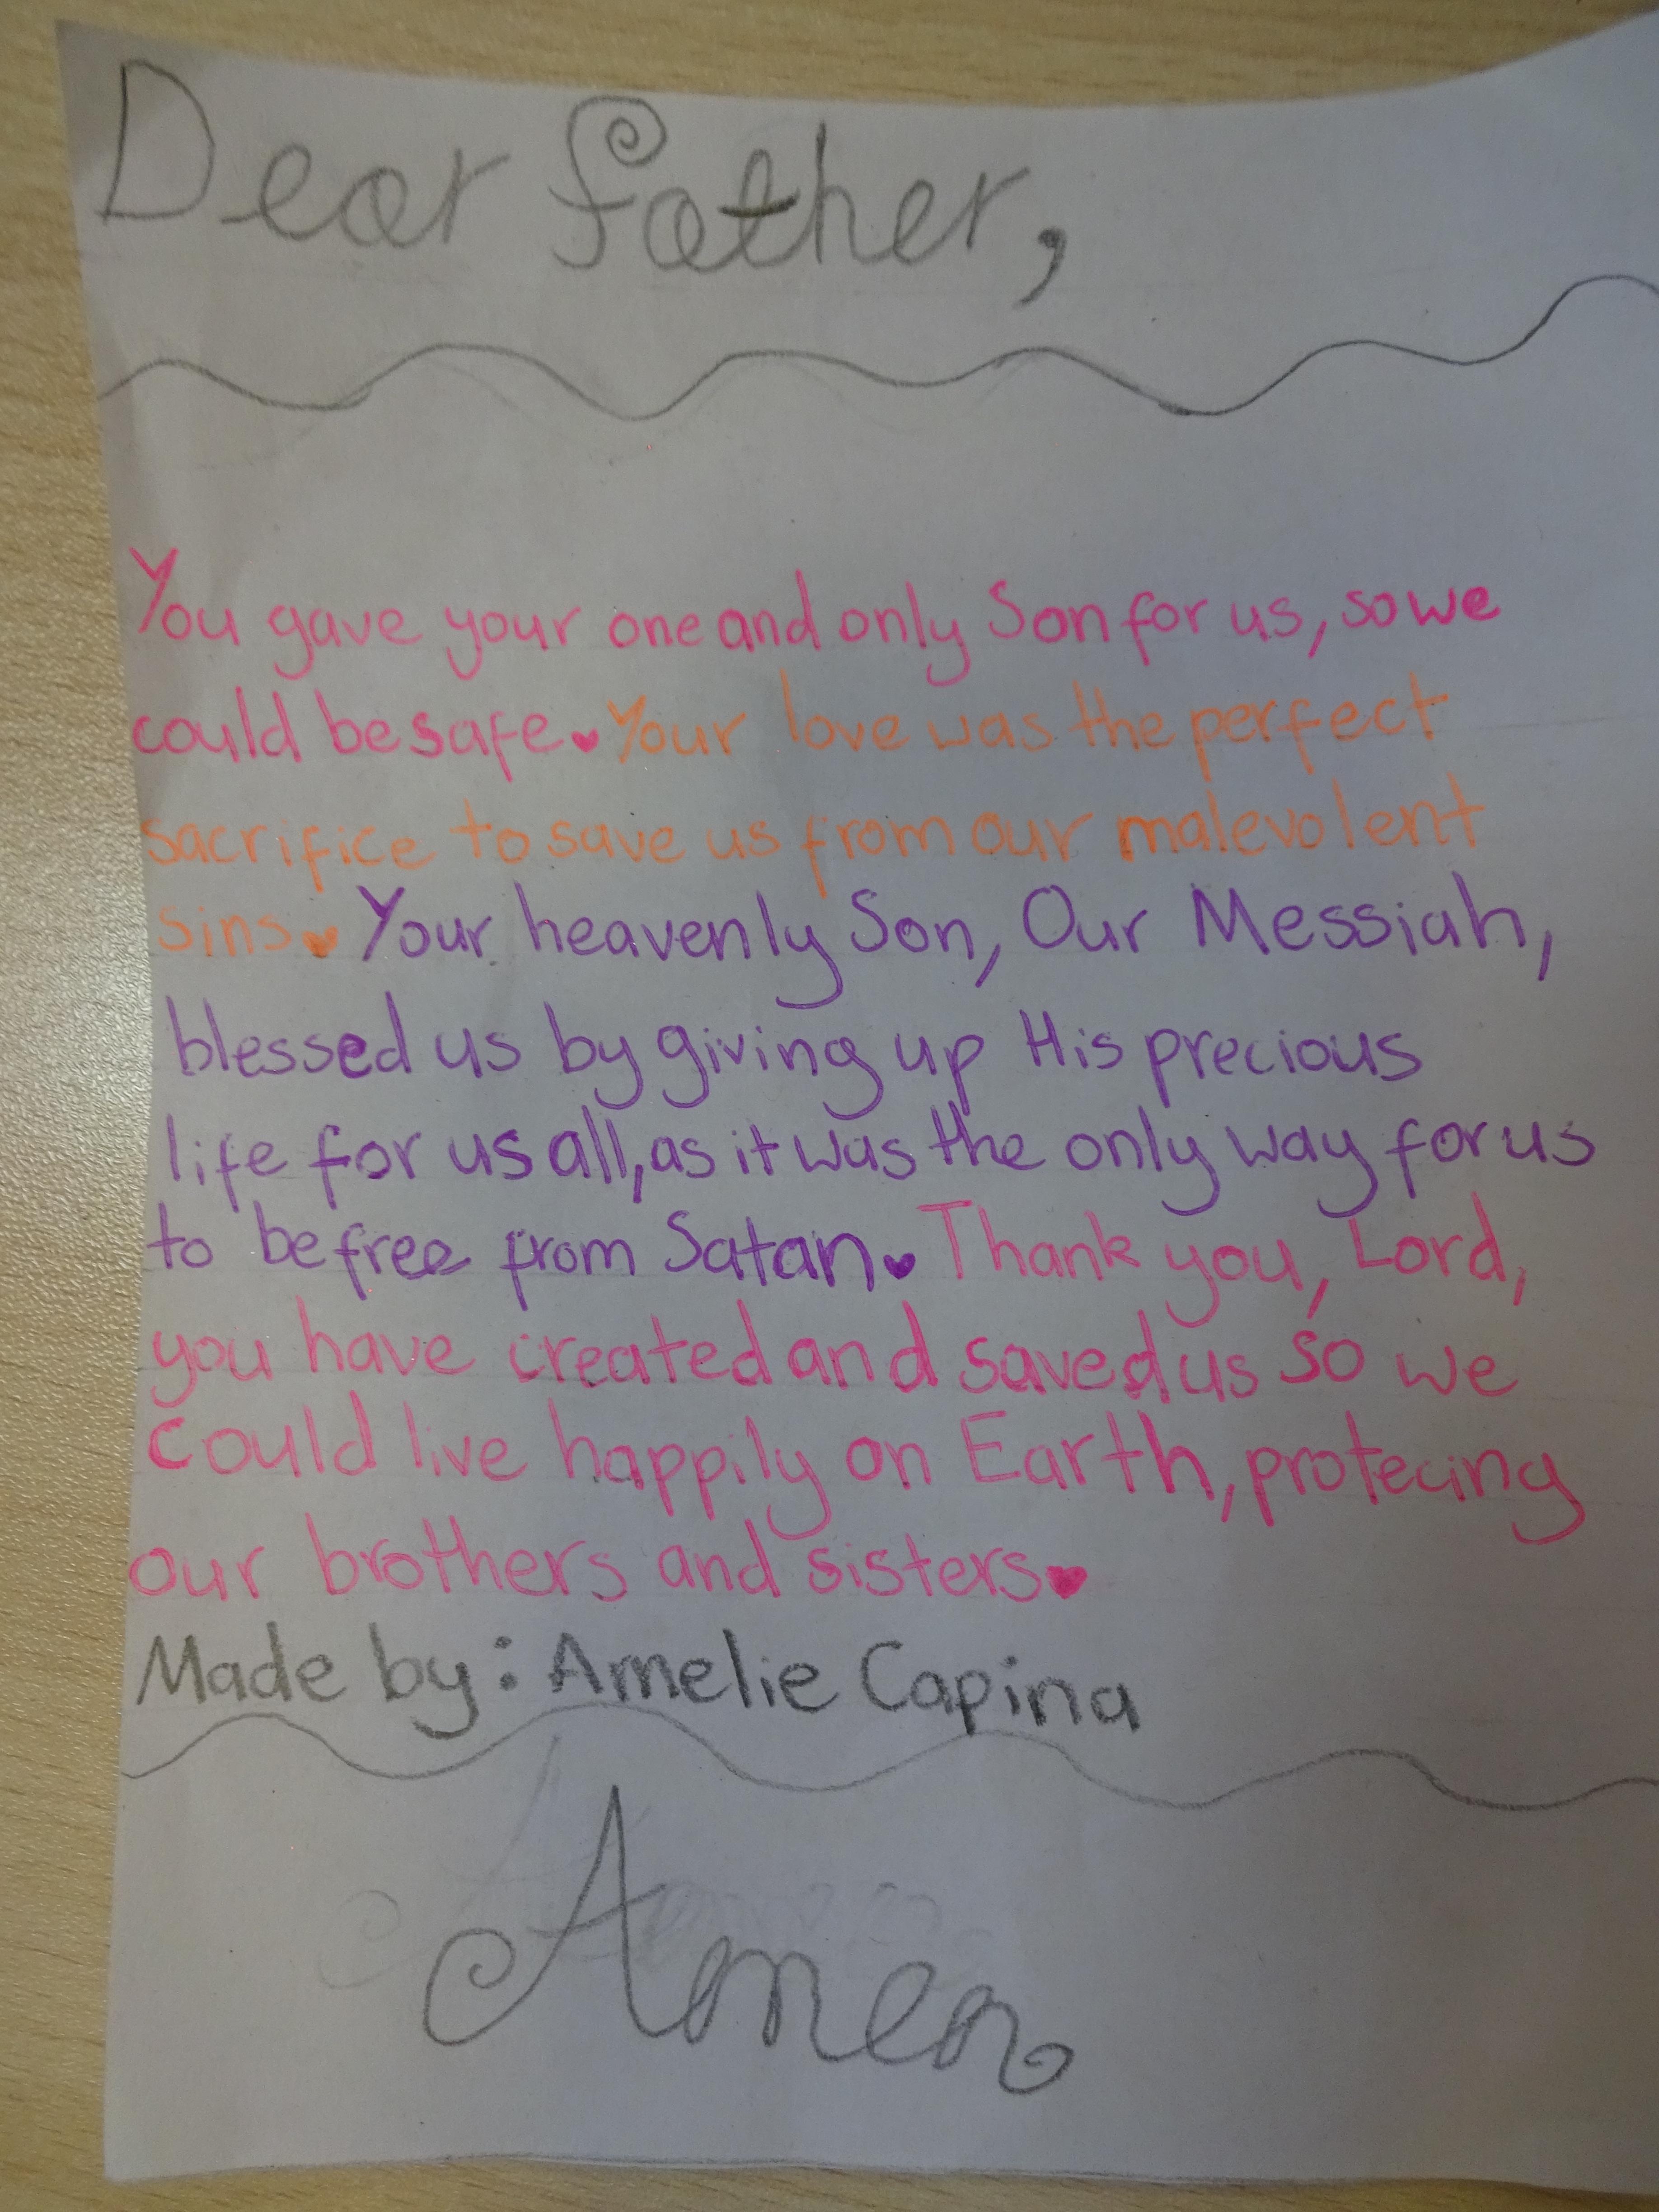 Dear father,
You gave your one and only Son for us, so we
could be safe♥Your love was the perfect
sacrifice to save us from our malevolent
sins♥Your heavenly Son, Our Messiah,
blessed us by giving up His precious
life for us all, as it was the only way for us
to be free from Satan♥Thank you, Lord,
you have created and saved us so we
could live happily on Earth, protecing
our brothers and sisters♥
Made by: Amelie Capina
Amen